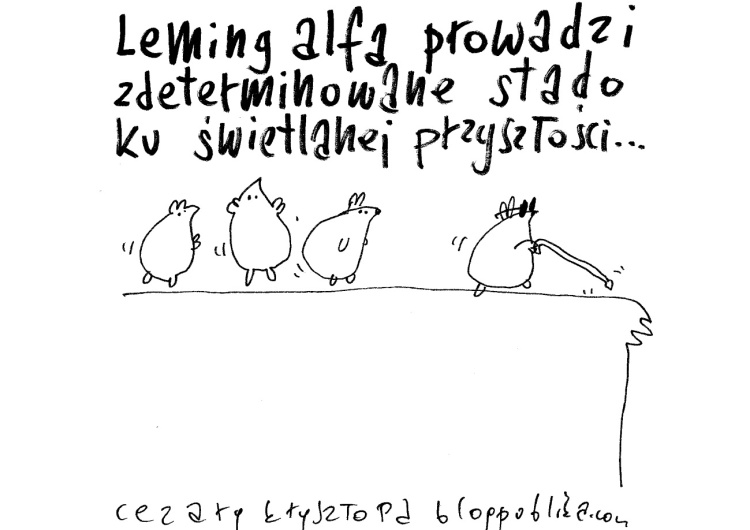 Leming alfa prowadzi
zdeterminowane stado
ku świetlanej przyszłości...
cezary krysztopa bloppublika.com